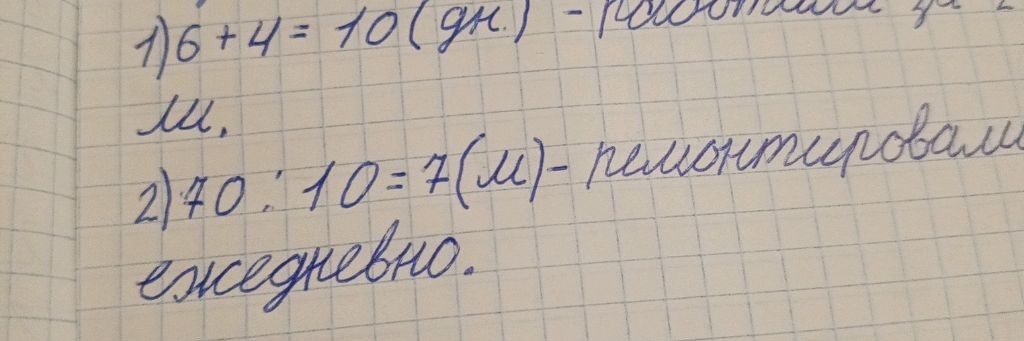 1) 6 + 4 = 10 (дн.) - работали за 2
м.
2) 70 : 10 = 7 (м) - ремонтировали
ежедневно.